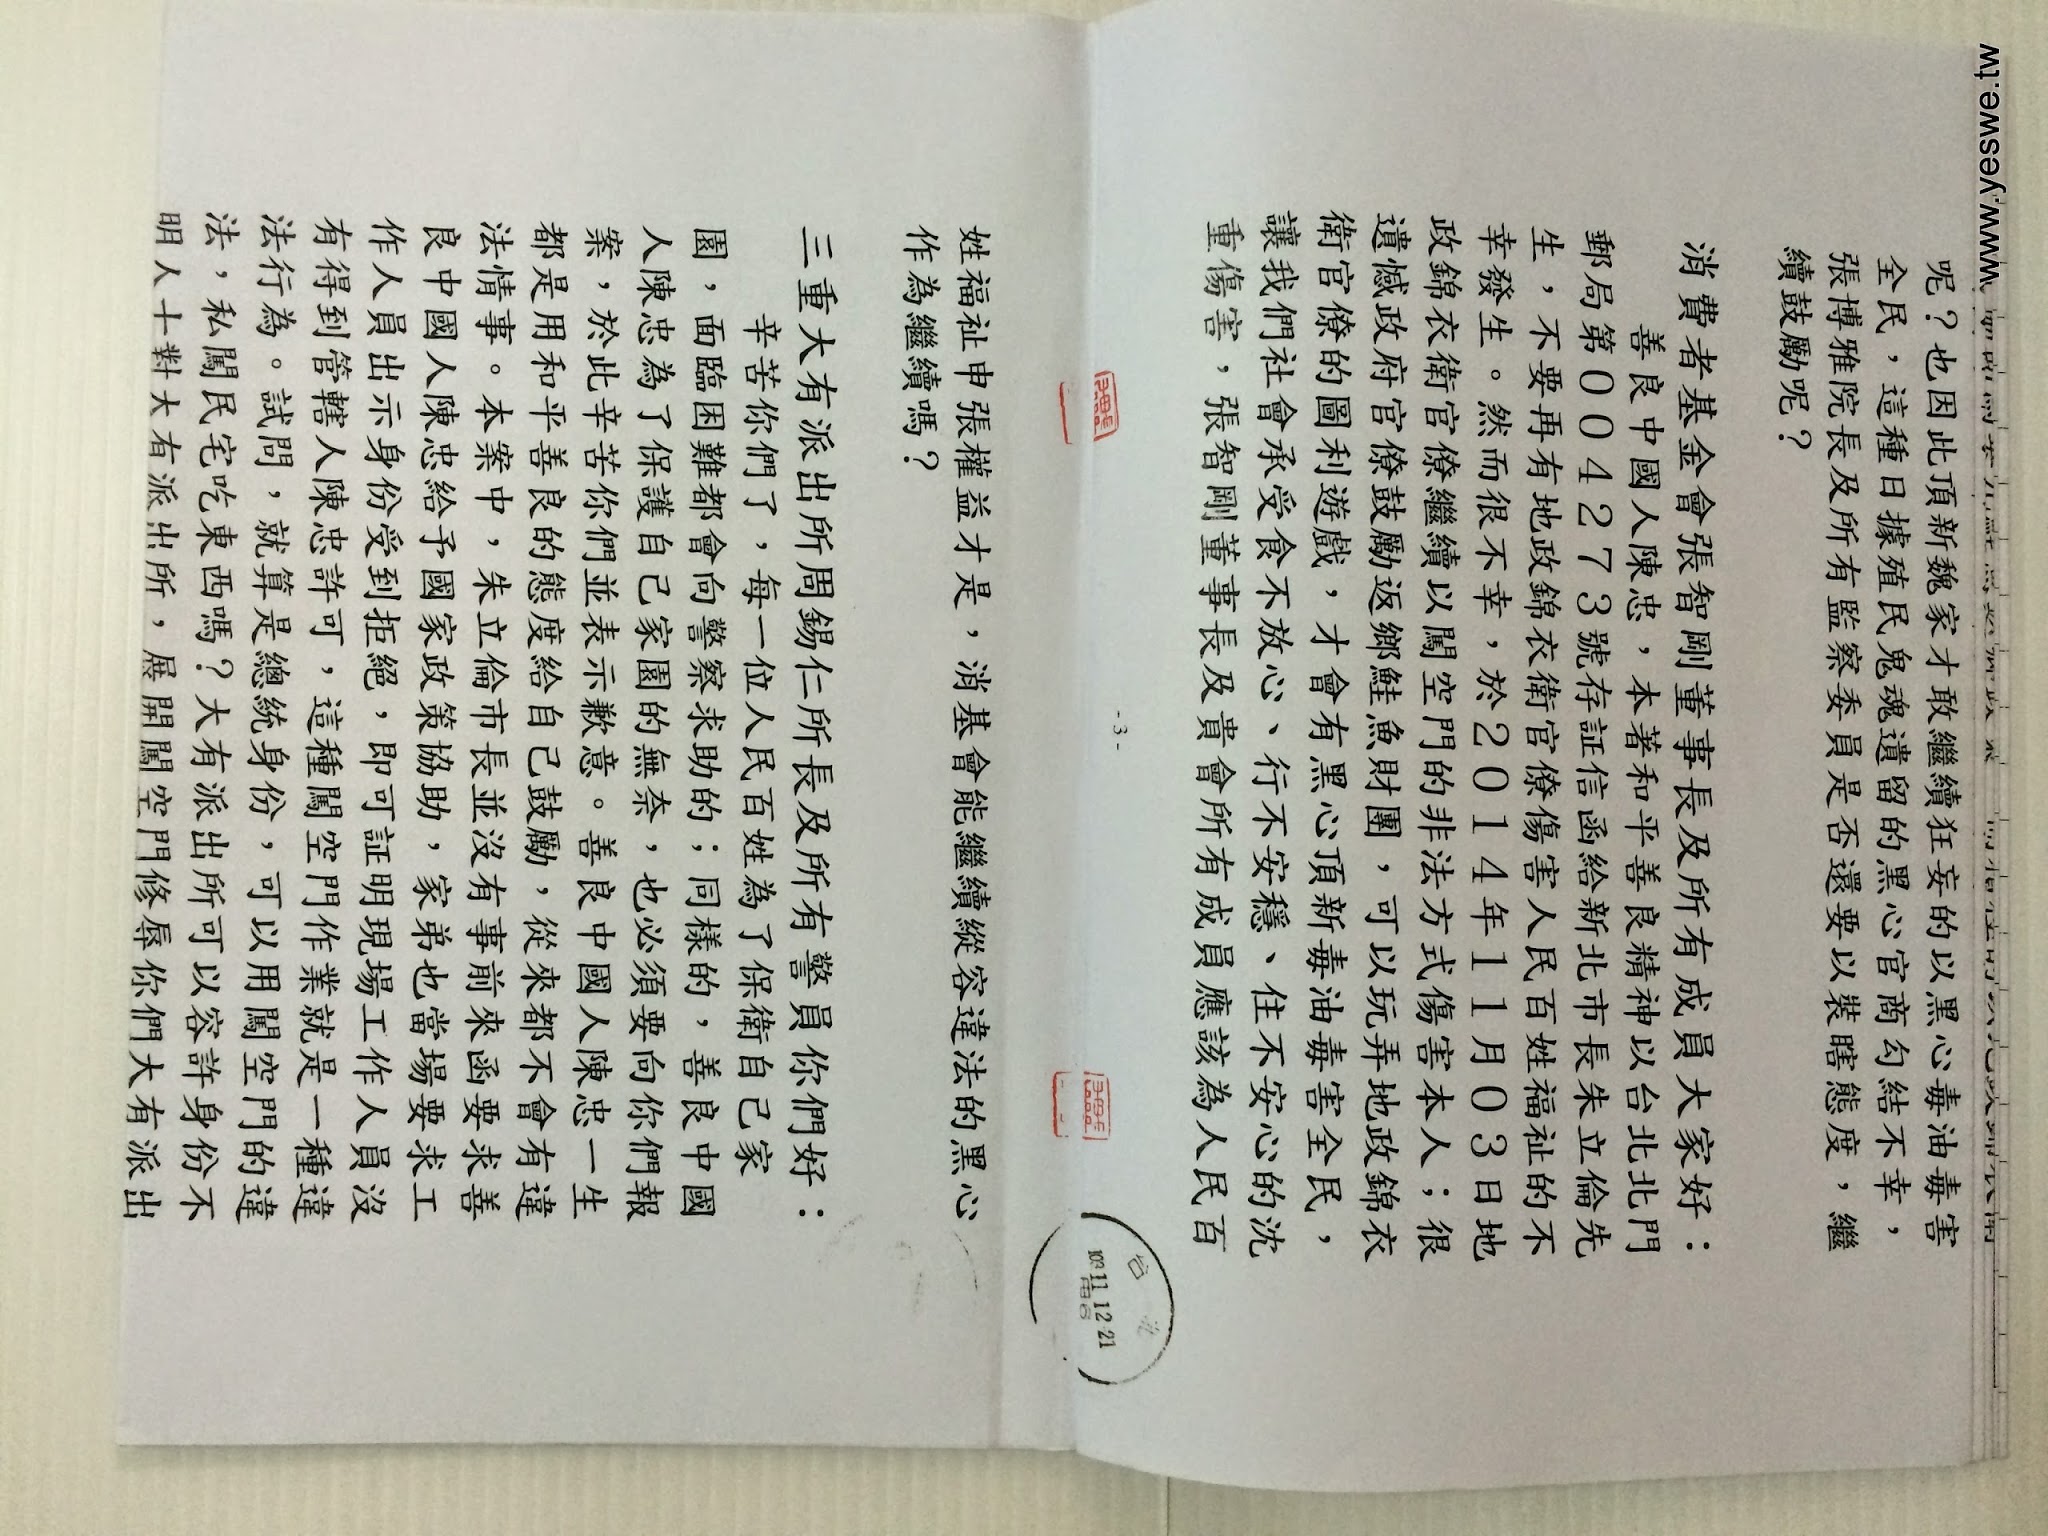 www.yeswe.tw
呢？也因此頂新魏家才敢繼續狂妄的以黑心毒油毒害
全民，這種日據殖民鬼魂遺留的黑心官商勾結不幸，
張博雅院長及所有監察委員是否還要以裝瞎態度，繼
續鼓勵呢？
消費者基金會張智剛董事長及所有成員大家好：
善良中國人陳忠，本著和平善良精神以台北北門
郵局第004273號存証信函給新北市長朱立倫先
生，不要再有地政錦衣衛官僚傷害人民百姓福祉的不
幸發生。然而很不幸，於2014年11月03日地
政錦衣衛官僚繼續以闖空門的非法方式傷害本人；很
遺憾政府官僚鼓勵返鄉鮭魚財團，可以玩弄地政錦衣
衛官僚的圖利遊戲，才會有黑心頂新毒油毒害全民，
讓我們社會承受食不放心、行不安穩、住不安心的沈
重傷害，張智剛董事長及貴會所有成員應該為人民百
-3-
台北
103.11.12.21
姓福祉申張權益才是，消基會能繼續縱容違法的黑心
作為繼續嗎？
三重大有派出所周錫仁所長及所有警員你們好：
辛苦你們了，每一位人民百姓為了保衛自己家
園，面臨困難都會向警察求助的；同樣的，善良中國
人陳忠為了保護自己家園的無奈，也必須要向你們報
案，於此辛苦你們並表示歉意。善良中國人陳忠一生
都是用和平善良的態度給自己鼓勵，從來都不會有違
法情事。本案中，朱立倫市長並沒有事前來函要求善
良中國人陳忠給予國家政策協助，家弟也當場要求工
作人員出示身份受到拒絕，即可証明現場工作人員沒
有得到管轄人陳忠許可，這種闖空門作業就是一種違
法行為。試問，就算是總統身份，可以用闖空門的違
法，私闖民宅吃東西嗎？大有派出所可以容許身份不
明人士對大有派出所，展開闖空門修辱你們大有派出